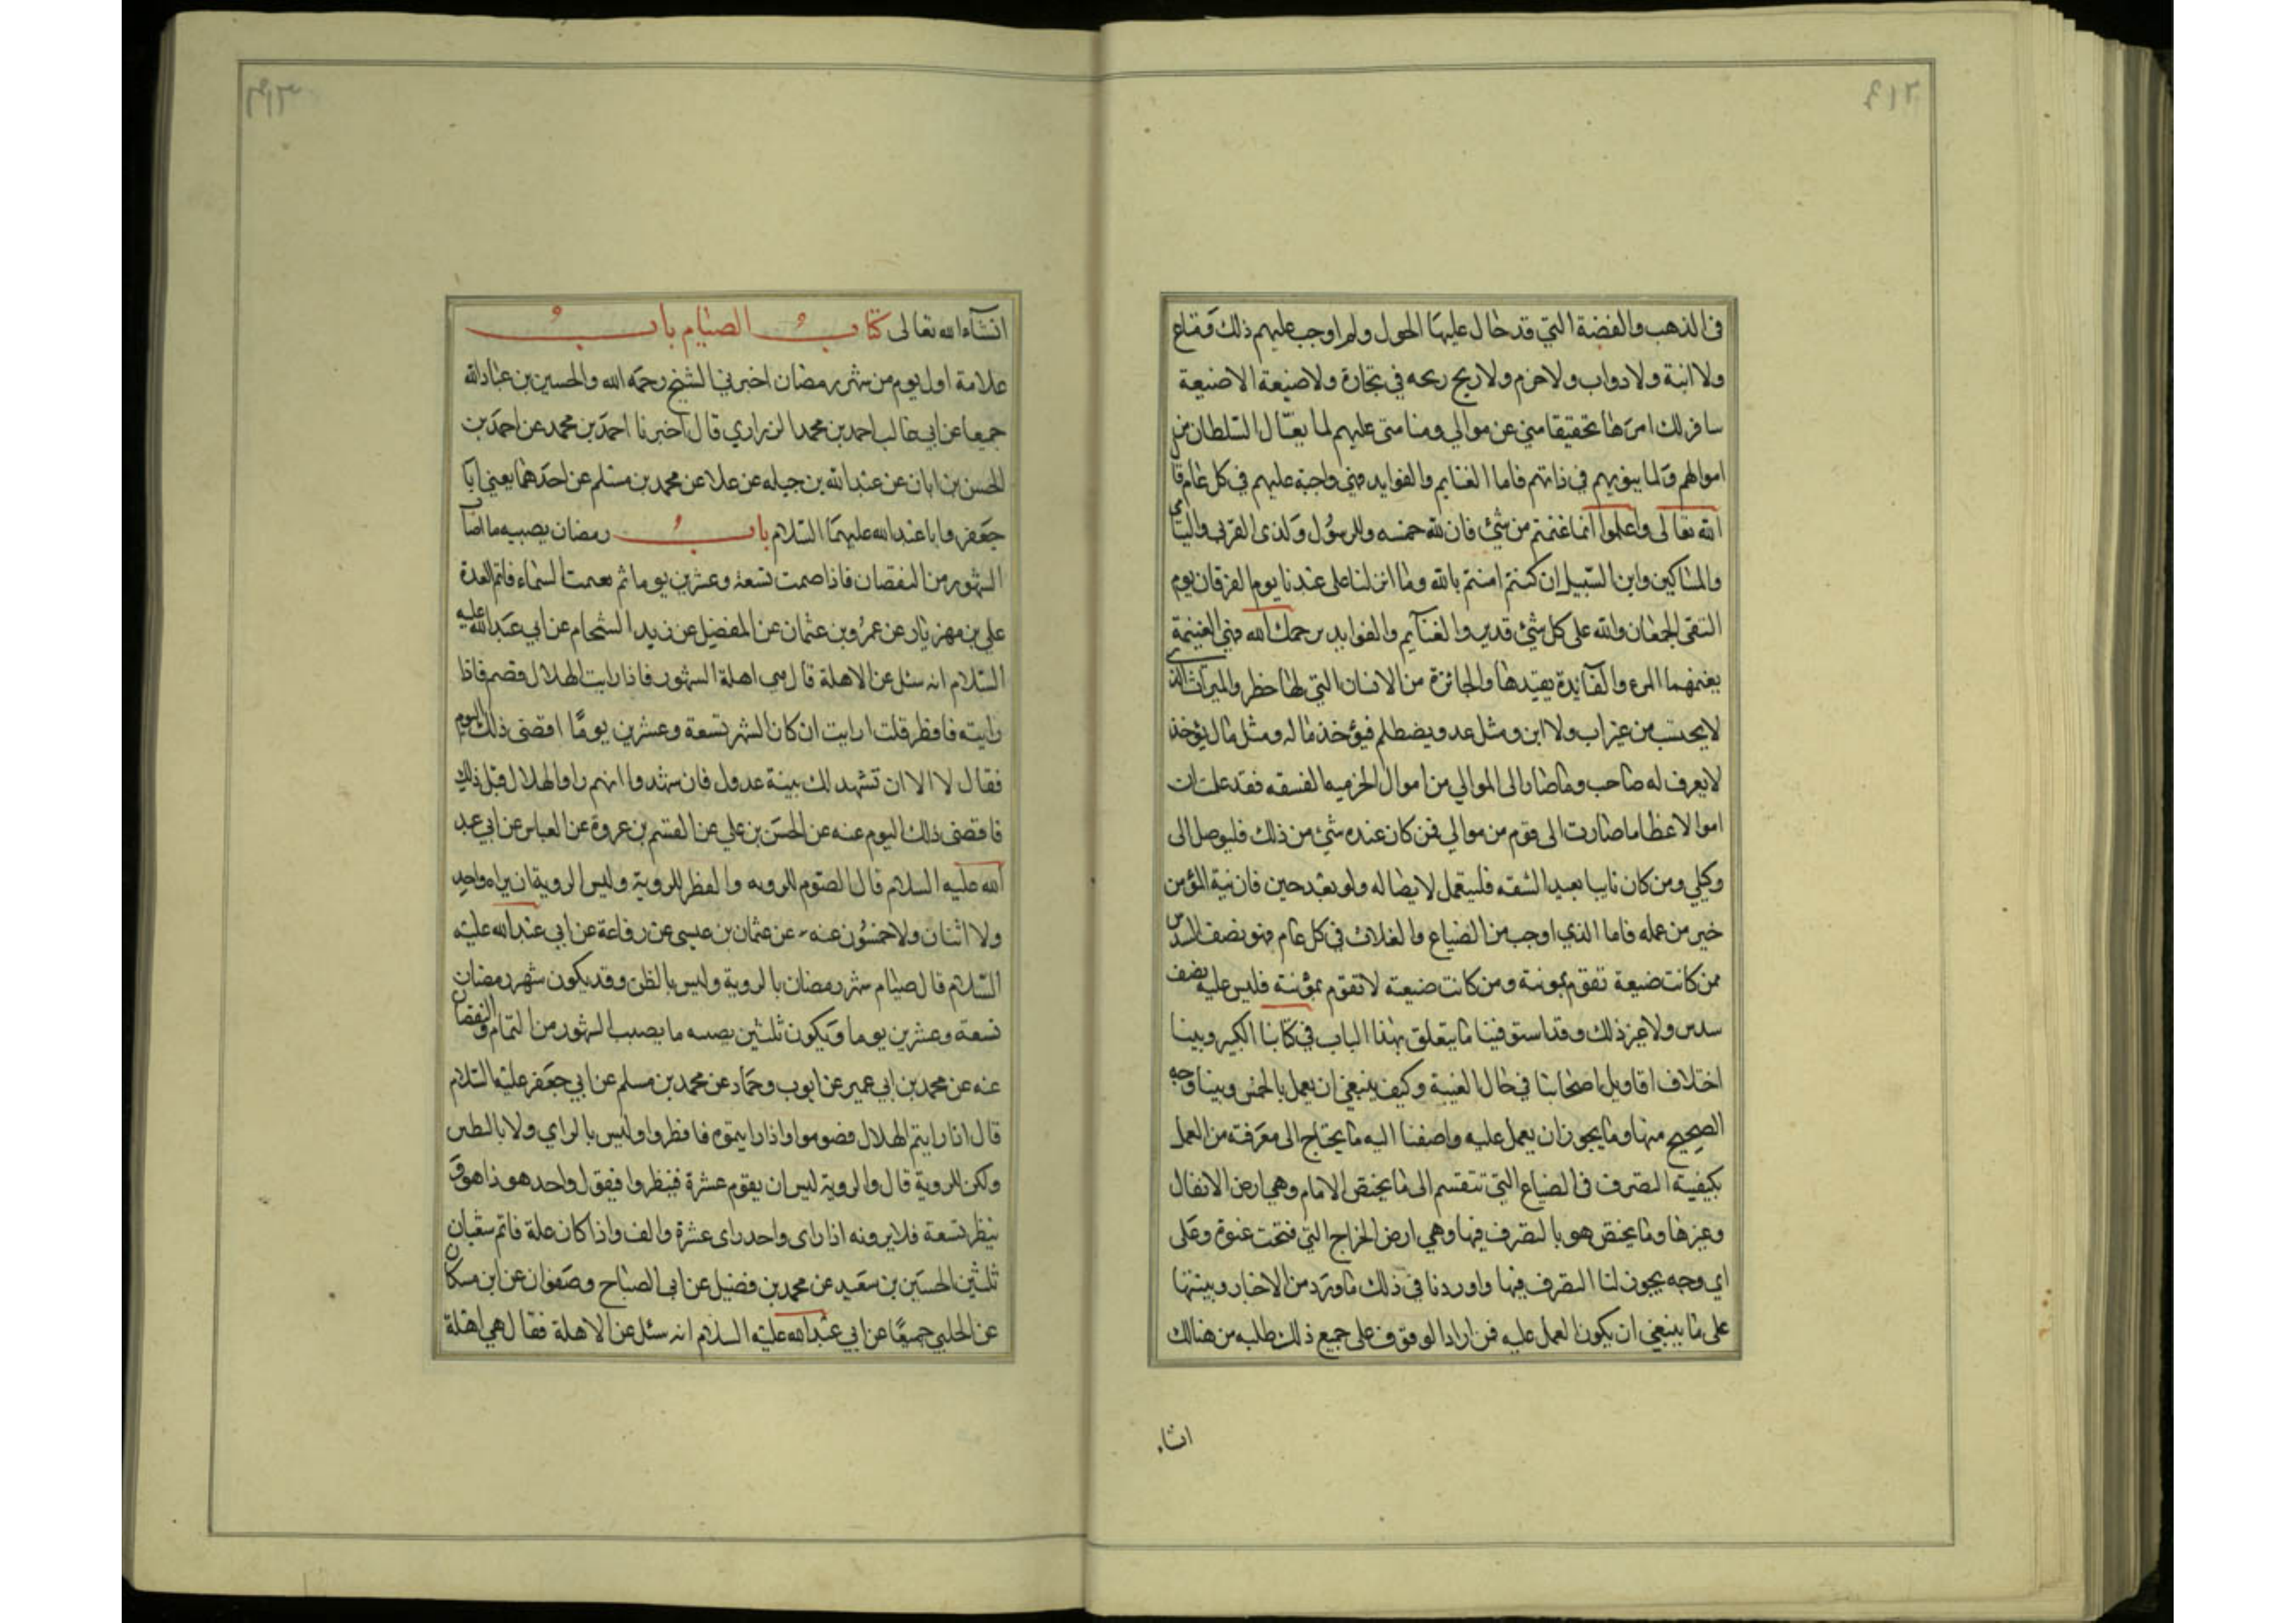 في الذهب والفضة التي قد حال عليها الحول ولم اوجب عليهم ذلك في متاع
ولا انية ولا دواب ولا خدم ولا ربح ربحه في تجارة ولا ضيعة الا ضيعة
سافسر لك امرها تخفيفا مني عن موالي ومنا مني عليهم لما يغتال السلطان من
اموالهم ولما ينوبهم في ذاتهم فاما الغنايم والفوايد فهي واجبة عليهم في كل عام قال
الله تعالى واعلموا انما غنمتم من شئ فان لله خمسه وللرسول ولذي القربى واليتامى
والمساكين وابن السبيل ان كنتم امنتم بالله وما انزلنا على عبدنا يوم الفرقان يوم
التقى الجمعان والله على كل شئ قدير والغنآيم والفوايد يرحمك الله فهي الغنيمة
يغنمها المرء والفآيدة يفيدها والجائزة من الانسان التي لها خطر والميراث الذي
لا يحتسب من غير اب ولا ابن ومثل عدو يصطلم فيؤخذ ماله ومثل مال يؤخذ
لا يعرف له صاحب وما صار الى الموالي من اموال الخرمية الفسقه فقد علمت ان
اموالا عظاما صارت الى قوم من موالي فمن كان عنده شئ من ذلك فليوصل الى
وكيلي ومن كان نايبا بعيد الشقه فليتعمل لايصاله ولو بعد حين فان نية المؤمن
خير من عمله فاما الذي اوجب من الضياع والغلات في كل عام فهو نصف السدس
ممن كانت ضيعة تقوم بمونته ومن كانت ضيعة لا تقوم بمؤنته فليس عليه نصف
سدس ولا غير ذلك وقد استوفينا ما يتعلق بهذا الباب في كتابنا الكبير وبينا
اختلاف اقاويل اصحابنا في حال الغيبة وكيف ينبغي ان يعمل بالخمس وبينا وجه
الصحيح منها وما يجوز ان يعمل عليه واضفنا اليه ما يحتاج الى معرفته من العمل
بكيفية التصرف في الضياع التي تنقسم الى ما يختص الامام وهي ارض الانفال
وغيرها وما يختص هو بالتصرف فيها وهي ارض الخراج التي فتحت عنوة وعلى
اي وجه يجوز لنا التصرف فيها واوردنا في ذلك ما ورد من الاخبار وبينتها
على ما ينبغي ان يكون العمل عليه فمن اراد الوقوف على جميع ذلك طلبه من هنالك
انشاء
انشآء الله تعالى كتاب الصيام باب
علامة اول يوم من شهر رمضان اخبرني الشيخ رحمه الله والحسين بن عبيد الله
جميعا عن ابي غالب احمد بن محمد الزراري قال اخبرنا احمد بن محمد عن احمد بن
الحسن بن ابان عن عبد الله بن جبله عن علا عن محمد بن مسلم عن احدهما يعني ابا
جعفر و ابا عبد الله عليهما السلام باب رمضان يصيبه ما اصاب
الشهور من النقصان فاذا صمت تسعة وعشرين يوما ثم تغيمت السماء فاتم العدة
علي بن مهزيار عن عمرو بن عثمان عن المفضل عن زيد الشحام عن ابي عبد الله عليه
السلام انه سئل عن الاهلة قال هي اهلة الشهور فاذا رايت الهلال فصم فاذا
رايته فافطر قلت ارايت ان كان الشهر تسعة وعشرين يوما اقضى ذلك اليوم
فقال لا الا ان تشهد لك بينة عدول فان شهدوا انهم راوا الهلال قبل ذلك
فاقضى ذلك اليوم عنه عن الحسن بن علي عن القسم بن عروة عن العباس عن ابي عبد
الله عليه السلام قال الصوم للرويه والفطر للروية وليس الروية ان يراه واحد
ولا اثنان ولا خمسون عنه عن عثمان بن عيسى عن رفاعة عن ابي عبد الله عليه
السلام قال صيام شهر رمضان بالروية وليس بالظن وقد يكون شهر رمضان
تسعة وعشرين يوما ويكون ثلثين يصيبه ما يصيب الشهور من التمام والنقصان
عنه عن محمد بن ابي عمير عن ايوب وحماد عن محمد بن مسلم عن ابي جعفر عليه السلام
قال اذا رايتم الهلال فصوموا واذا رايتموه فافطروا وليس بالراي ولا بالظن
ولكن للروية قال والروية ليس ان يقوم عشرة فينظروا فيقول واحد هو ذا هو و
ينظر تسعة فلا يرونه اذا راى واحد راى عشرة والف واذا كان علة فاتم شعبان
ثلثين الحسين بن سعيد عن محمد بن فضيل عن ابي الصباح وصفوان عن ابن مسكان
عن الحلبي جميعا عن ابي عبد الله عليه السلام انه سئل عن الاهلة فقال هي اهلة